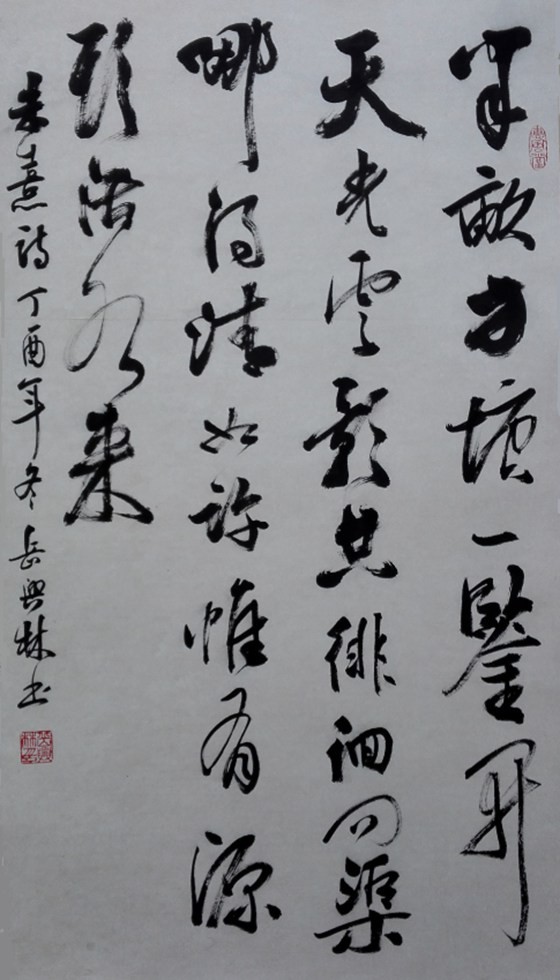 半畝方塘一鑒開
天光雲影共徘徊問渠
哪得清如許惟有源
頭活水來
朱熹詩丁酉年冬岳興林書